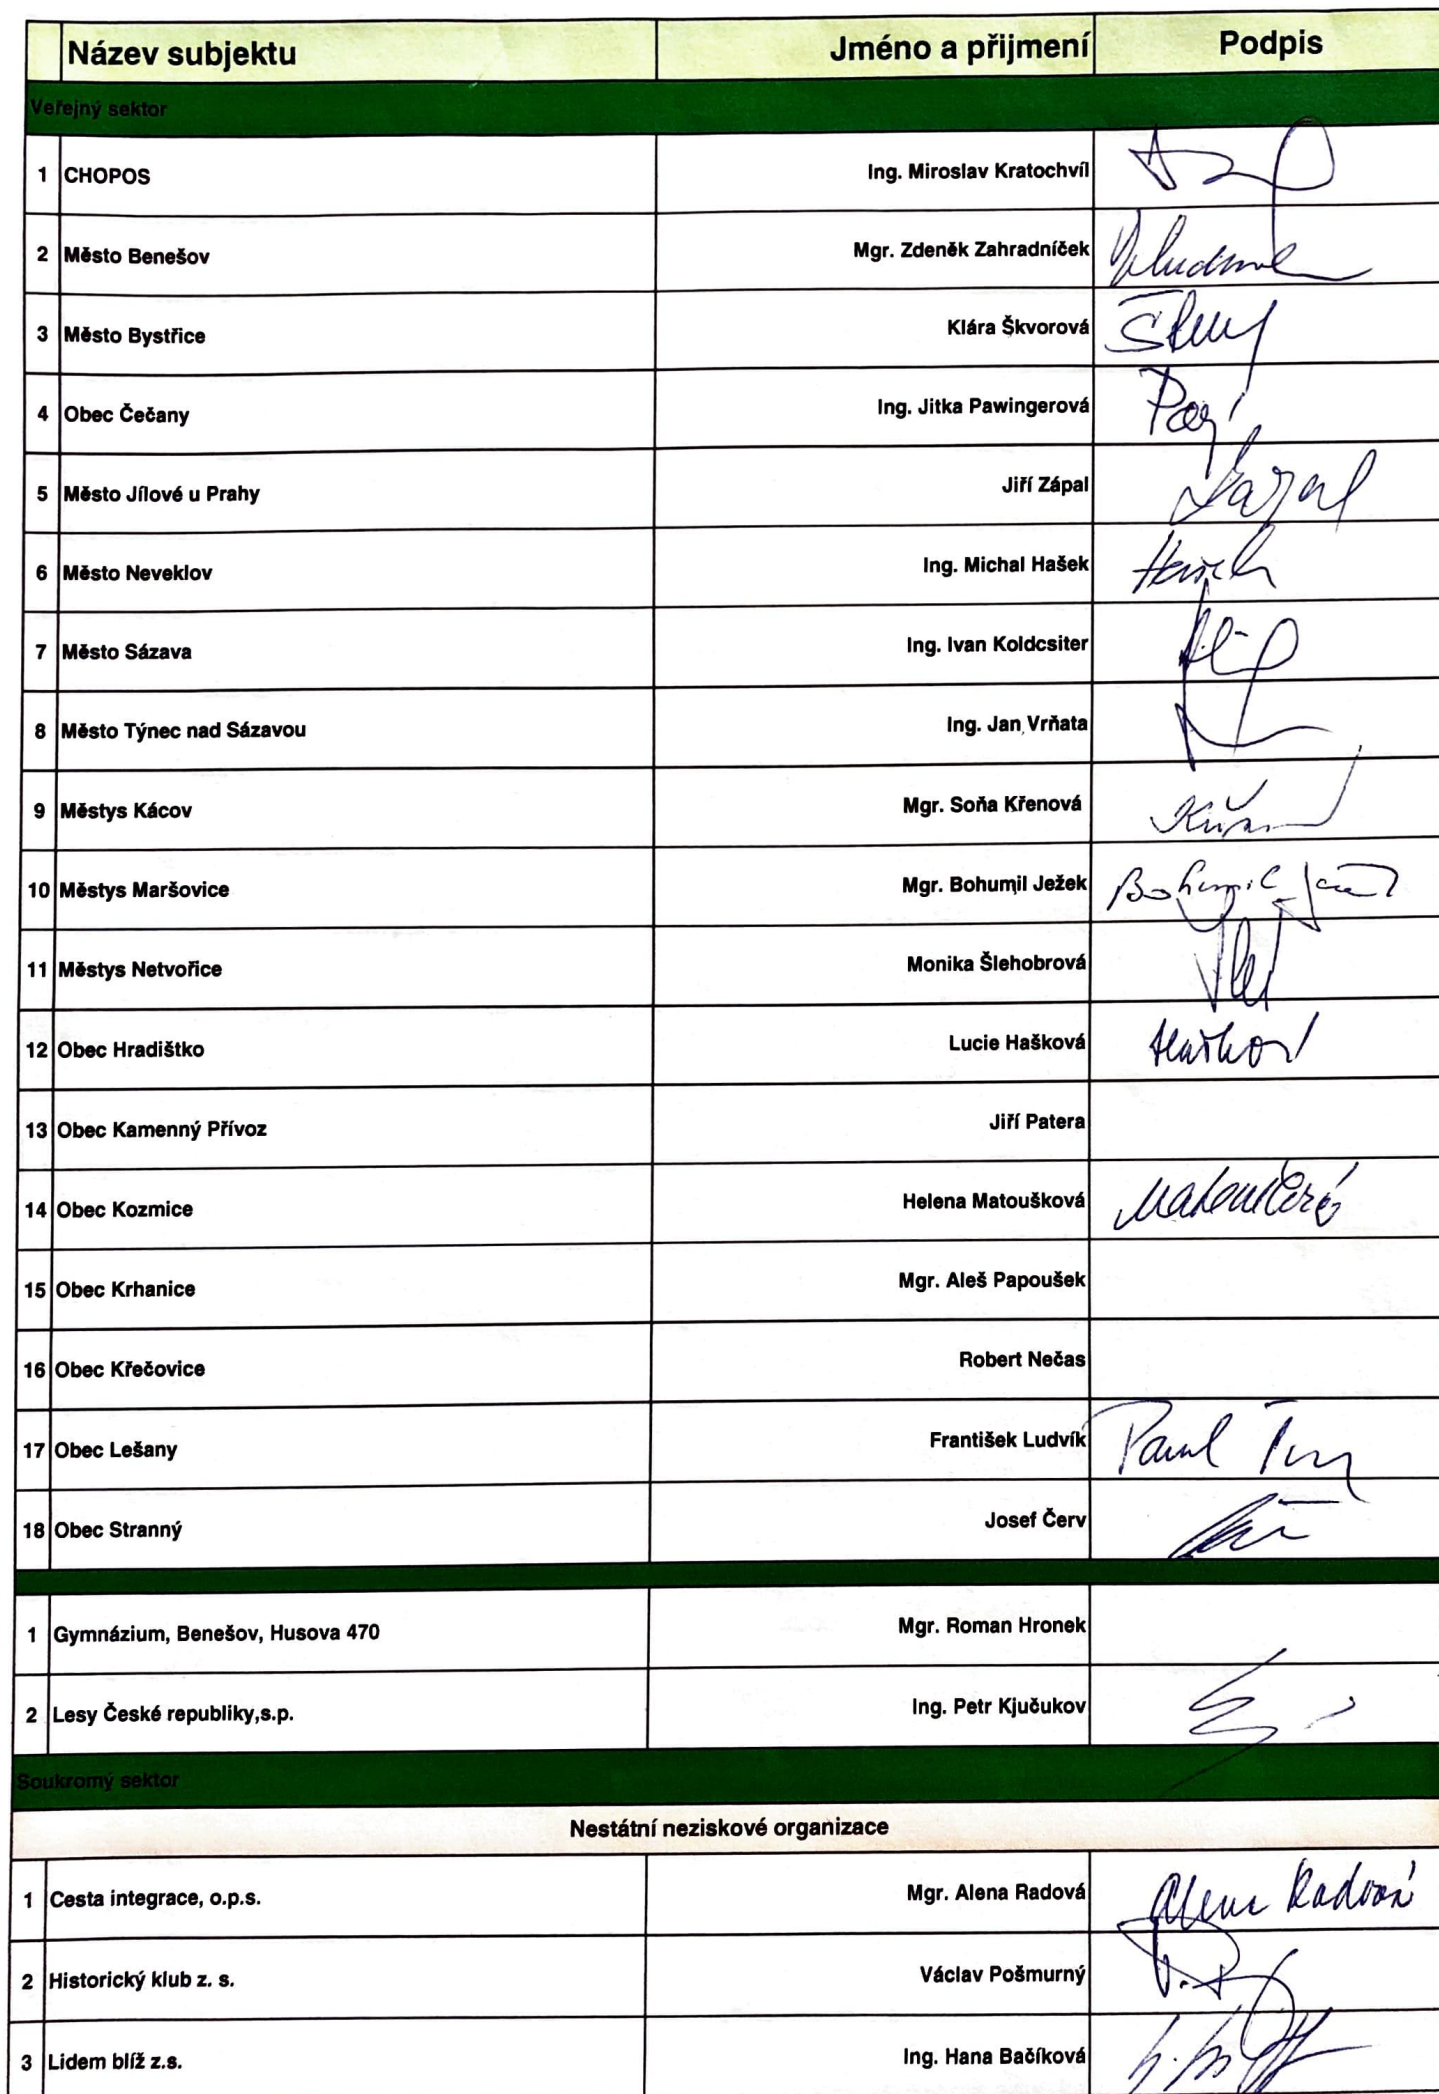 Název subjektu Jméno a přijmení Podpis
Veřejný sektor
1 CHOPOS Ing. Miroslav Kratochvíl
2 Město Benešov Mgr. Zdeněk Zahradníček
3 Město Bystřice Klára Škvorová
4 Obec Čečany Ing. Jitka Pawingerová
5 Město Jílové u Prahy Jiří Zápal
6 Město Neveklov Ing. Michal Hašek
7 Město Sázava Ing. Ivan Koldcsiter
8 Město Týnec nad Sázavou Ing. Jan Vrňata
9 Městys Kácov Mgr. Soňa Křenová
10 Městys Maršovice Mgr. Bohumil Ježek
11 Městys Netvořice Monika Šlehobrová
12 Obec Hradištko Lucie Hašková
13 Obec Kamenný Přívoz Jiří Patera
14 Obec Kozmice Helena Matoušková
15 Obec Krhanice Mgr. Aleš Papoušek
16 Obec Křečovice Robert Nečas
17 Obec Lešany František Ludvík
18 Obec Stranný Josef Červ
1 Gymnázium, Benešov, Husova 470 Mgr. Roman Hronek
2 Lesy České republiky,s.p. Ing. Petr Kjučukov
Soukromý sektor
Nestátní neziskové organizace
1 Cesta integrace, o.p.s. Mgr. Alena Radová
2 Historický klub z. s. Václav Pošmurný
3 Lidem blíž z.s. Ing. Hana Bačíková